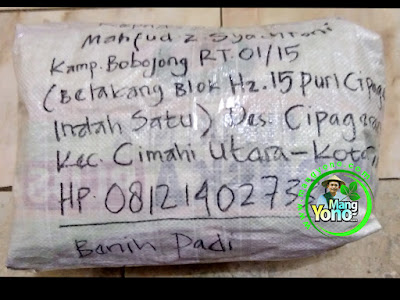 Mahfud Z. Syachroni
Kamp. Bobojong RT. 01/15
(Belakang Blok Hz. 15 Puri Cipag
Indah Satu) Des. Cipagaran
Kec. Cimahi Utara - Kota
HP. 0812140273
Benih Padi
Mang
Yono